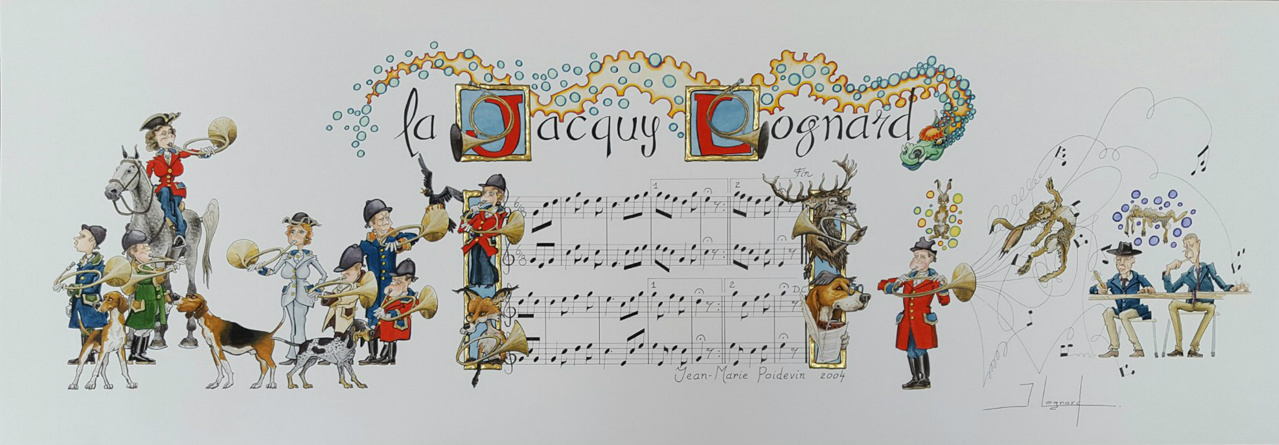 la Jacquy Lognard
Fin
1 2
6/8
1 2
D.C.
Jean-Marie Poidevin 2004
J Lognard